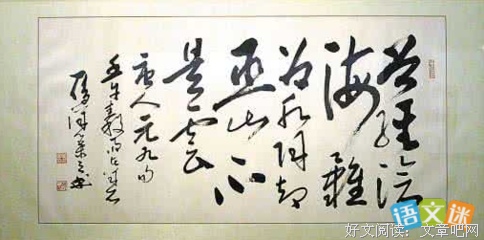 曾經滄
海難
为水除却
巫山不
是云
唐人元九句
语文迷
好文阅读：文章吧网